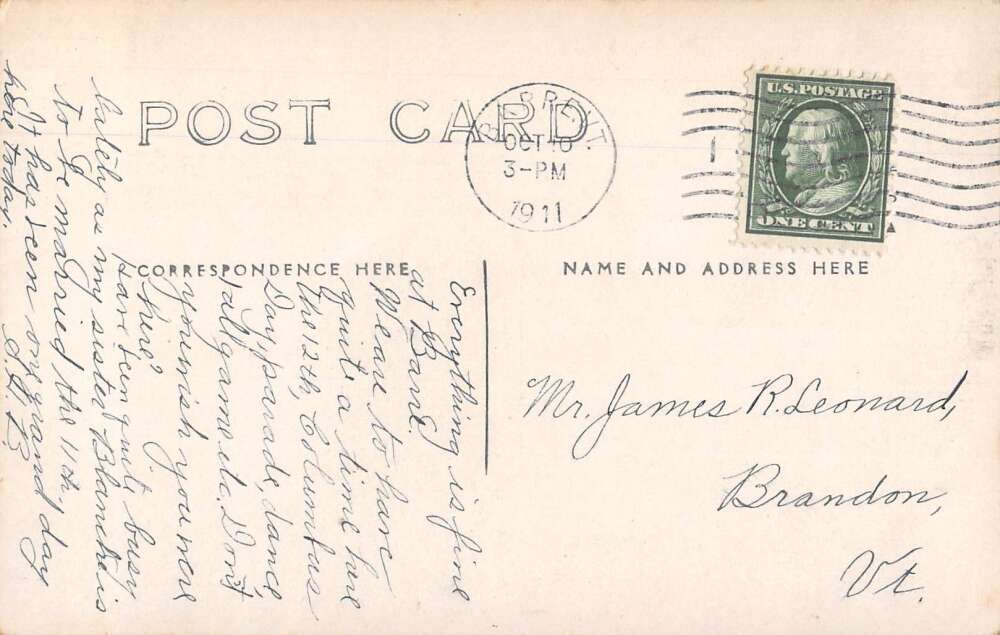 POST CARD
OCT 10
3-PM
1911
U.S. POSTAGE
ONE CENT
CORRESPONDENCE HERE
NAME AND ADDRESS HERE
Everything is fine
at Barre.
We are to have
quite a time here
the 12th, Columbus
Day, parade, dance,
ball game etc. Don't
you wish you were
here?
Have been quite busy
lately as my sister Blanche is
to be married the 11th.
It has been one grand day
here today.
Mr. James R. Leonard,
Brandon,
Vt.